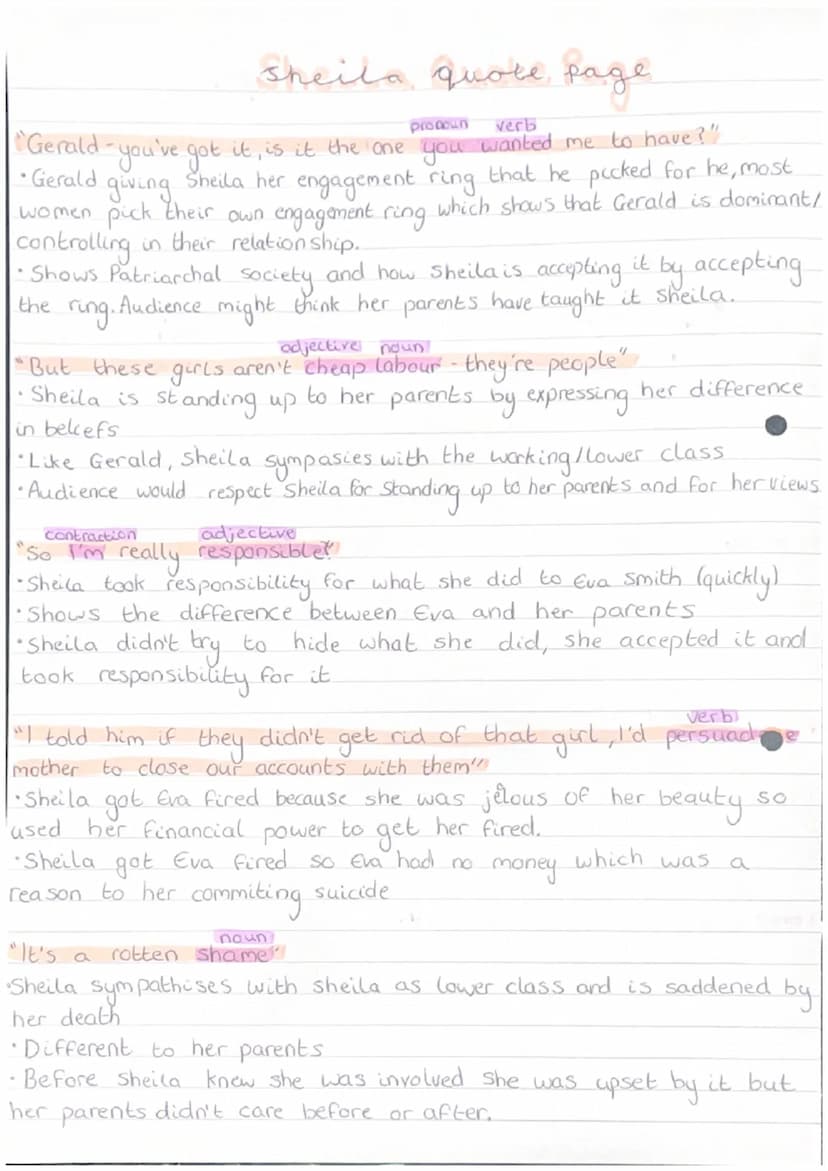 Sheila Quote Page
pronoun verb
"Gerald - you've got it, is it the one you wanted me to have?"
• Gerald giving Sheila her engagement ring that he picked for he, most
women pick their own engagement ring which shows that Gerald is dominant/
controlling in their relationship.
• Shows Patriarchal society and how Sheila is accepting it by accepting
the ring. Audience might think her parents have taught it sheila.
adjective noun
"But these girls aren't cheap labour - they're people"
• Sheila is standing up to her parents by expressing her difference
in beliefs
• Like Gerald, Sheila sympasies with the working/lower class
• Audience would respect Sheila for standing up to her parents and for her views
contraction adjective
"So I'm really responsible?"
• Sheila took responsibility for what she did to Eva Smith (quickly)
• Shows the difference between Eva and her parents
• Sheila didn't try to hide what she did, she accepted it and
took responsibility for it
verb
"I told him if they didn't get rid of that girl, I'd persuade
mother to close our accounts with them"
• Sheila got Eva fired because she was jelous of her beauty so
used her financial power to get her fired.
• Sheila got Eva fired so Eva had no money which was a
reason to her commiting suicide
noun
"It's a rotten shame"
• Sheila sympathises with sheila as lower class and is saddened by
her death
• Different to her parents
• Before Sheila knew she was involved she was upset by it but
her parents didn't care before or after.